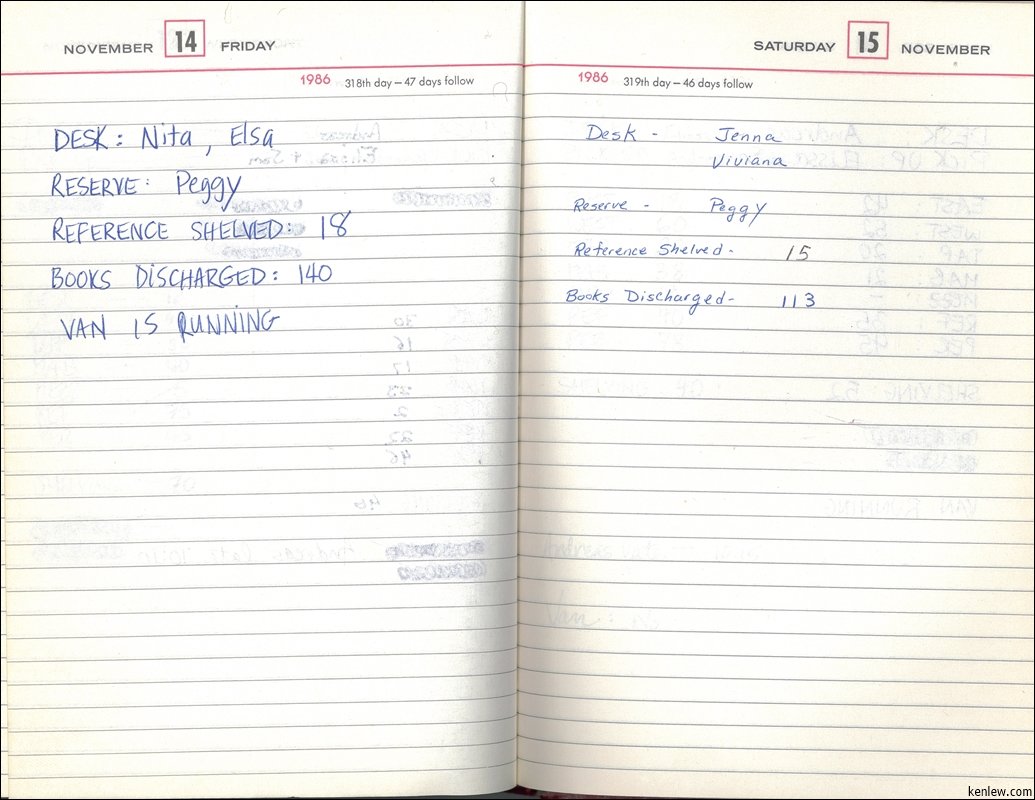 NOVEMBER 14 FRIDAY
1986 318th day — 47 days follow
DESK: Nita, Elsa
RESERVE: Peggy
REFERENCE SHELVED: 18
BOOKS DISCHARGED: 140
VAN IS RUNNING
SATURDAY 15 NOVEMBER
1986 319th day — 46 days follow
Desk - Jenna
Viviana
Reserve - Peggy
Reference Shelved - 15
Books Discharged - 113
kenlew.com